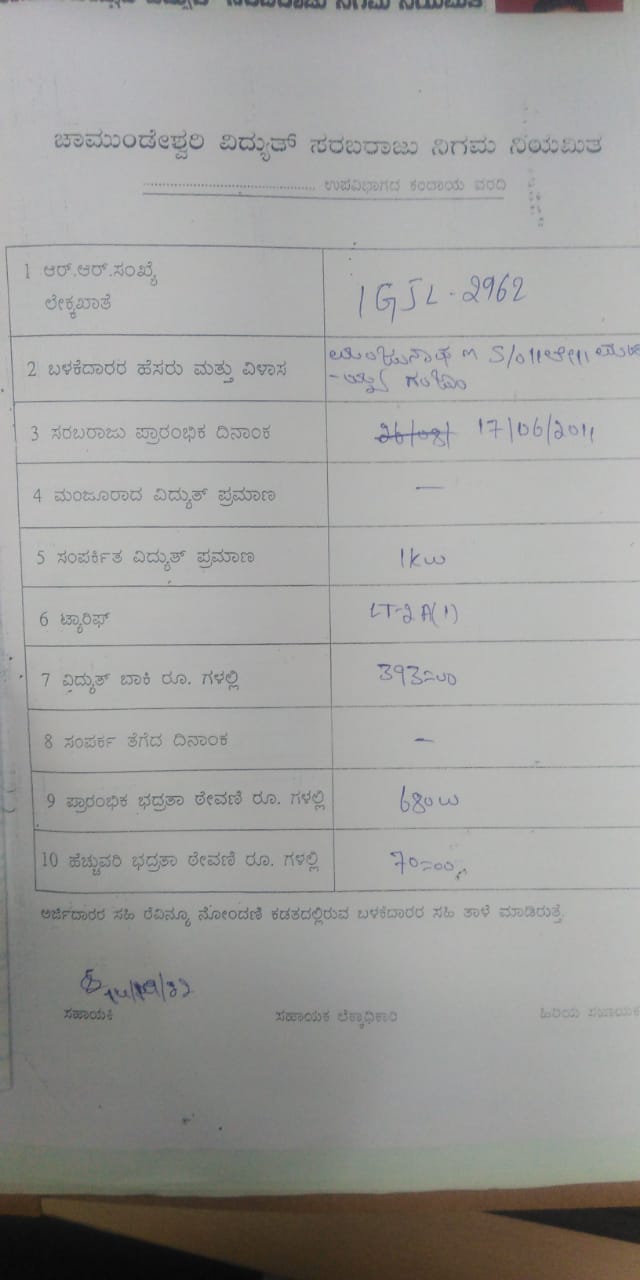 ಚಾಮುಂಡೇಶ್ವರಿ ವಿದ್ಯುತ್ ಸರಬರಾಜು ನಿಗಮ ನಿಯಮಿತ
........................................... ಉಪವಿಭಾಗದ ಕಂದಾಯ ವರದಿ
1 ಆರ್.ಆರ್.ಸಂಖ್ಯೆ
ಲೆಕ್ಕಖಾತೆ
IGJL-2962
2 ಬಳಕೆದಾರರ ಹೆಸರು ಮತ್ತು ವಿಳಾಸ
ಮಂಜುನಾಥ m S/o
ಗಂಜಾಂ
3 ಸರಬರಾಜು ಪ್ರಾರಂಭಿಕ ದಿನಾಂಕ
17/06/2011
4 ಮಂಜೂರಾದ ವಿದ್ಯುತ್ ಪ್ರಮಾಣ
—
5 ಸಂಪರ್ಕಿತ ವಿದ್ಯುತ್ ಪ್ರಮಾಣ
1kw
6 ಟ್ಯಾರಿಫ್
LT-2A(1)
7 ವಿದ್ಯುತ್ ಬಾಕಿ ರೂ. ಗಳಲ್ಲಿ
393=00
8 ಸಂಪರ್ಕ ತೆಗೆದ ದಿನಾಂಕ
–
9 ಪ್ರಾರಂಭಿಕ ಭದ್ರತಾ ಠೇವಣಿ ರೂ. ಗಳಲ್ಲಿ
680
10 ಹೆಚ್ಚುವರಿ ಭದ್ರತಾ ಠೇವಣಿ ರೂ. ಗಳಲ್ಲಿ
70=00
ಅರ್ಜಿದಾರರ ಸಹಿ ರೆವಿನ್ಯೂ ನೋಂದಣಿ ಕಡತದಲ್ಲಿರುವ ಬಳಕೆದಾರರ ಸಹಿ ತಾಳೆ ಮಾಡಿರುತ್ತೆ.
ಸಹಾಯಕ ಸಹಾಯಕ ಲೆಕ್ಕಾಧಿಕಾರಿ ಹಿರಿಯ ಸಹಾಯಕ